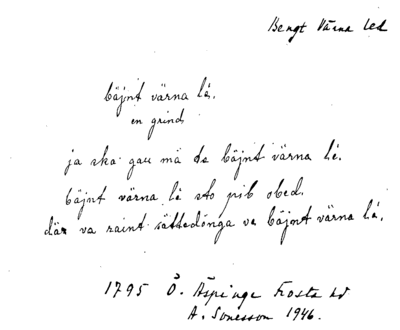 Bengt Värna led
bäjnt värna lé.
en grind
ja ska gau mä te bäjnt värna lé.
bäjnt värna lé sto pib obed.
där va raint sättedönga ve bäjnt värna lé.
1795 Ö. Äspinge Frosta hd
A. Sonesson 1946.